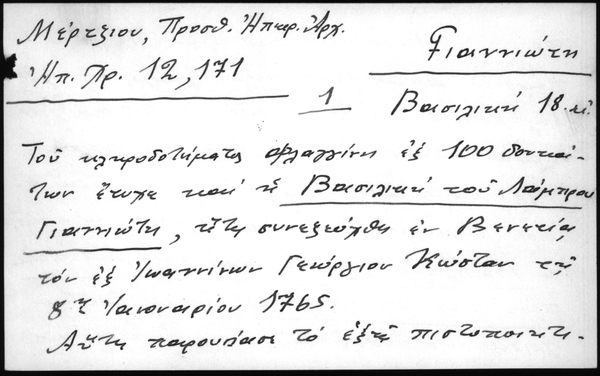 Μέρτζιου, Προσθ. Ἠπειρ. Ἀρχ.
Ἠπ. Χρ. 12, 171
Γιαννιώτη
Βασιλική 18. αἰ.
1
Τοῦ κληροδοτήματος Φλαγγίνη ἐξ 100 δουκά-
των ἔτυχε καί ἡ Βασιλική τοῦ Λάμπρου
Γιαννιώτη, ἥτις συνεζεύχθη ἐν Βενετίᾳ
τόν ἐξ Ἰωαννίνων Γεώργιον Κώσταν τῇ
8ῃ Ἰανουαρίου 1765.
Αὕτη παρουσίασε τό ἑξῆς πιστοποιητι-